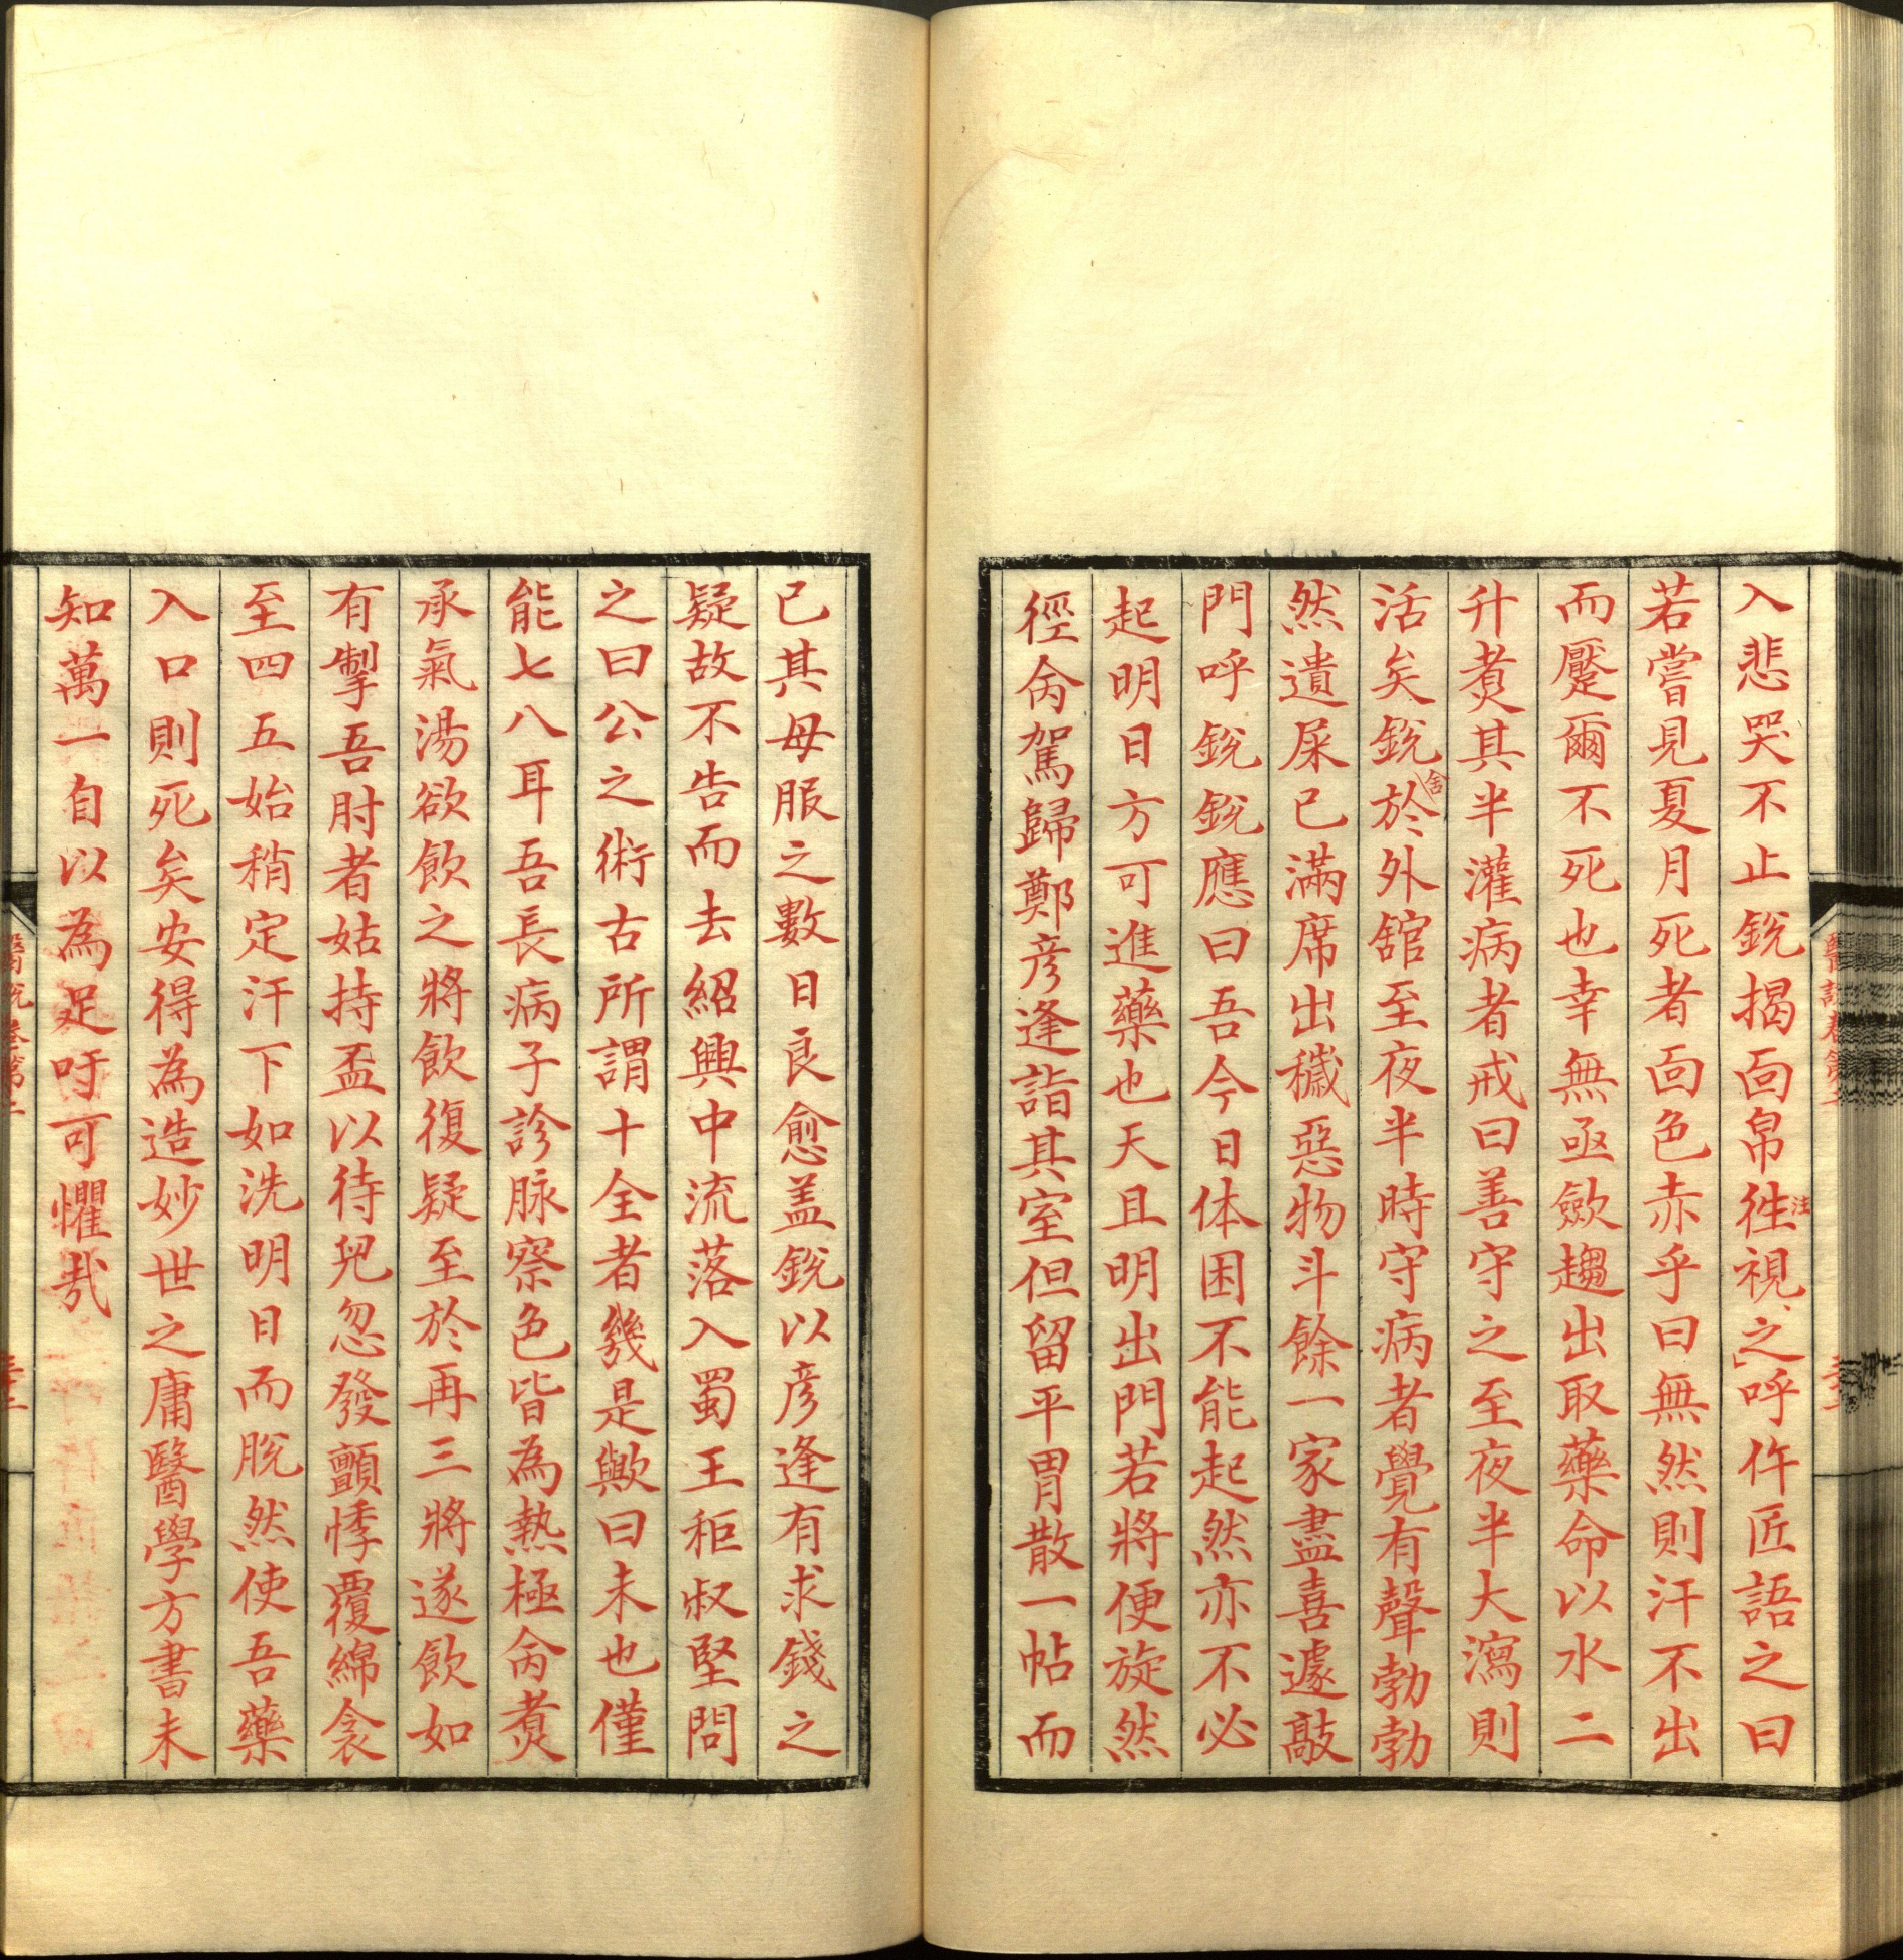 入悲哭不止銳揭面帛徃視之呼仵匠語之曰
注
若嘗見夏月死者面色赤乎曰無然則汗不出
而蹷爾不死也幸無亟歛趨出取藥命以水二
升煮其半灌病者戒曰善守之至夜半大瀉則
活矣銳於外舘至夜半時守病者覺有聲勃勃
舍
然遺屎已滿席出穢惡物斗餘一家盡喜遽敲
門呼銳銳應曰吾今日体困不能起然亦不必
起明日方可進藥也天且明出門若將便旋然
徑命駕歸鄭彥逢詣其室但留平胃散一帖而
已其母服之數日良愈盖銳以彥逢有求錢之
疑故不告而去紹興中流落入蜀王秬叔堅問
之曰公之術古所謂十全者幾是歟曰未也僅
能七八耳吾長病子診脉察色皆為熱極命煮
承氣湯欲飲之將飲復疑至於再三將遂飲如
有掣吾肘者姑持盃以待兒忽發顫悸覆綿衾
至四五始稍定汗下如洗明日而脫然使吾藥
入口則死矣安得為造妙世之庸醫學方書未
知萬一自以為足吁可懼哉